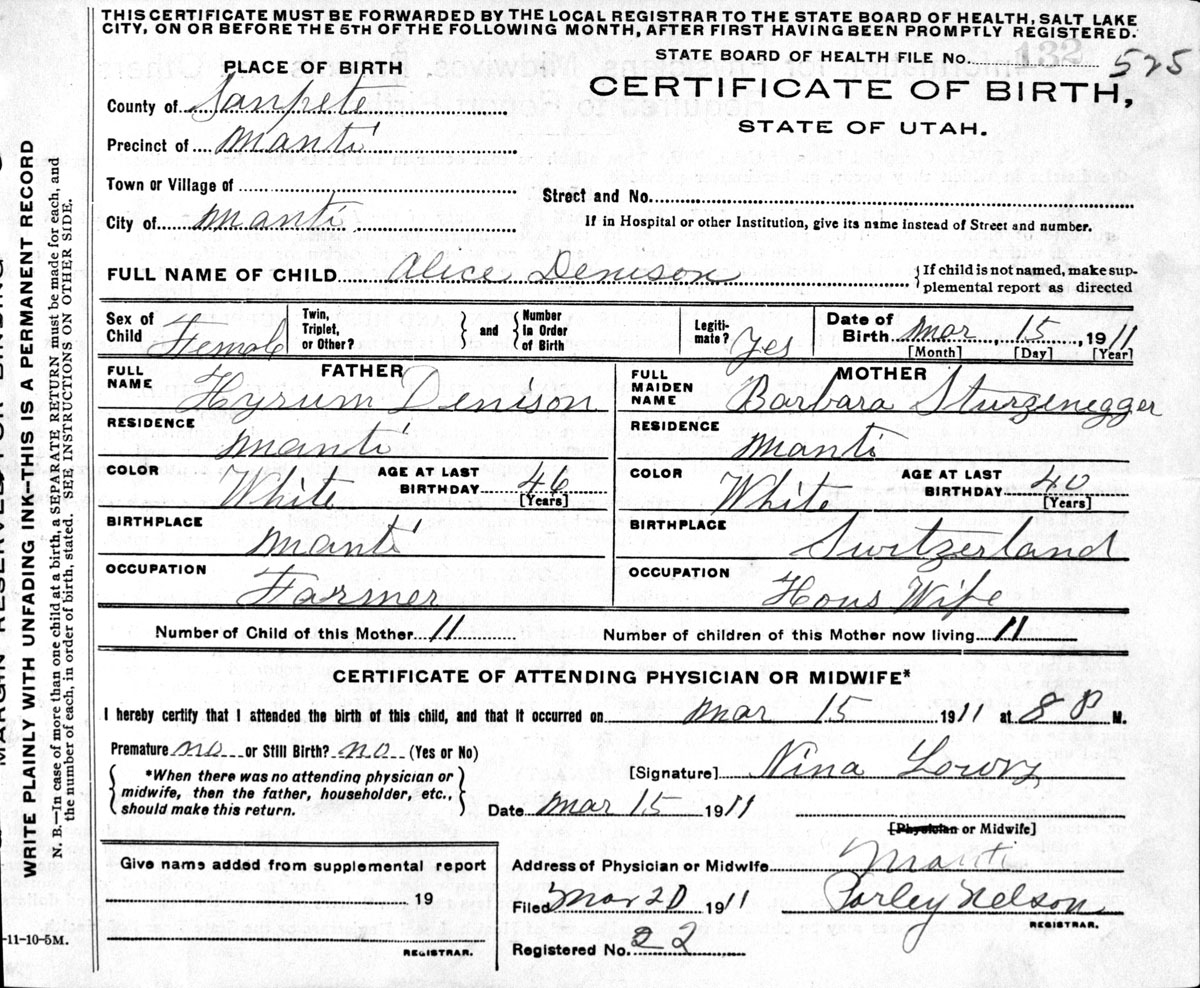 THIS CERTIFICATE MUST BE FORWARDED BY THE LOCAL REGISTRAR TO THE STATE BOARD OF HEALTH, SALT LAKE
CITY, ON OR BEFORE THE 5TH OF THE FOLLOWING MONTH, AFTER FIRST HAVING BEEN PROMPTLY REGISTERED.
STATE BOARD OF HEALTH FILE No. 132 525
PLACE OF BIRTH
CERTIFICATE OF BIRTH,
STATE OF UTAH.
County of Sanpete
Precinct of Manti
Town or Village of
Street and No.
City of Manti
If in Hospital or other Institution, give its name instead of Street and number.
FULL NAME OF CHILD Alice Denison
If child is not named, make sup-
plemental report as directed
Sex of Child Female
Twin, Triplet, or Other?
and
Number In Order of Birth
Legiti-mate? Yes
Date of Birth Mar 15, 1911
[Month] [Day] [Year]
FATHER
FULL NAME Hyrum Denison
RESIDENCE Manti
COLOR White AGE AT LAST BIRTHDAY 46
[Years]
BIRTHPLACE Manti
OCCUPATION Farmer
MOTHER
FULL MAIDEN NAME Barbara Sturzenegger
RESIDENCE Manti
COLOR White AGE AT LAST BIRTHDAY 40
[Years]
BIRTHPLACE Switzerland
OCCUPATION Hous Wife
Number of Child of this Mother 11 Number of children of this Mother now living 11
CERTIFICATE OF ATTENDING PHYSICIAN OR MIDWIFE*
I hereby certify that I attended the birth of this child, and that it occurred on Mar 15 1911 at 8 P M.
Premature no or Still Birth? no (Yes or No)
*When there was no attending physician or
midwife, then the father, householder, etc.,
should make this return.
[Signature] Nina Lowry
Date Mar 15 1911
[Physician or Midwife]
Give name added from supplemental report
19
REGISTRAR.
Address of Physician or Midwife Manti
Filed Mar 20 1911 Parley Nelson
REGISTRAR.
Registered No. 22
-11-10-5M.
WRITE PLAINLY WITH UNFADING INK—THIS IS A PERMANENT RECORD
N. B.—In case of more than one child at a birth, a SEPARATE RETURN must be made for each, and
the number of each, in order of birth, stated. SEE INSTRUCTIONS ON OTHER SIDE.